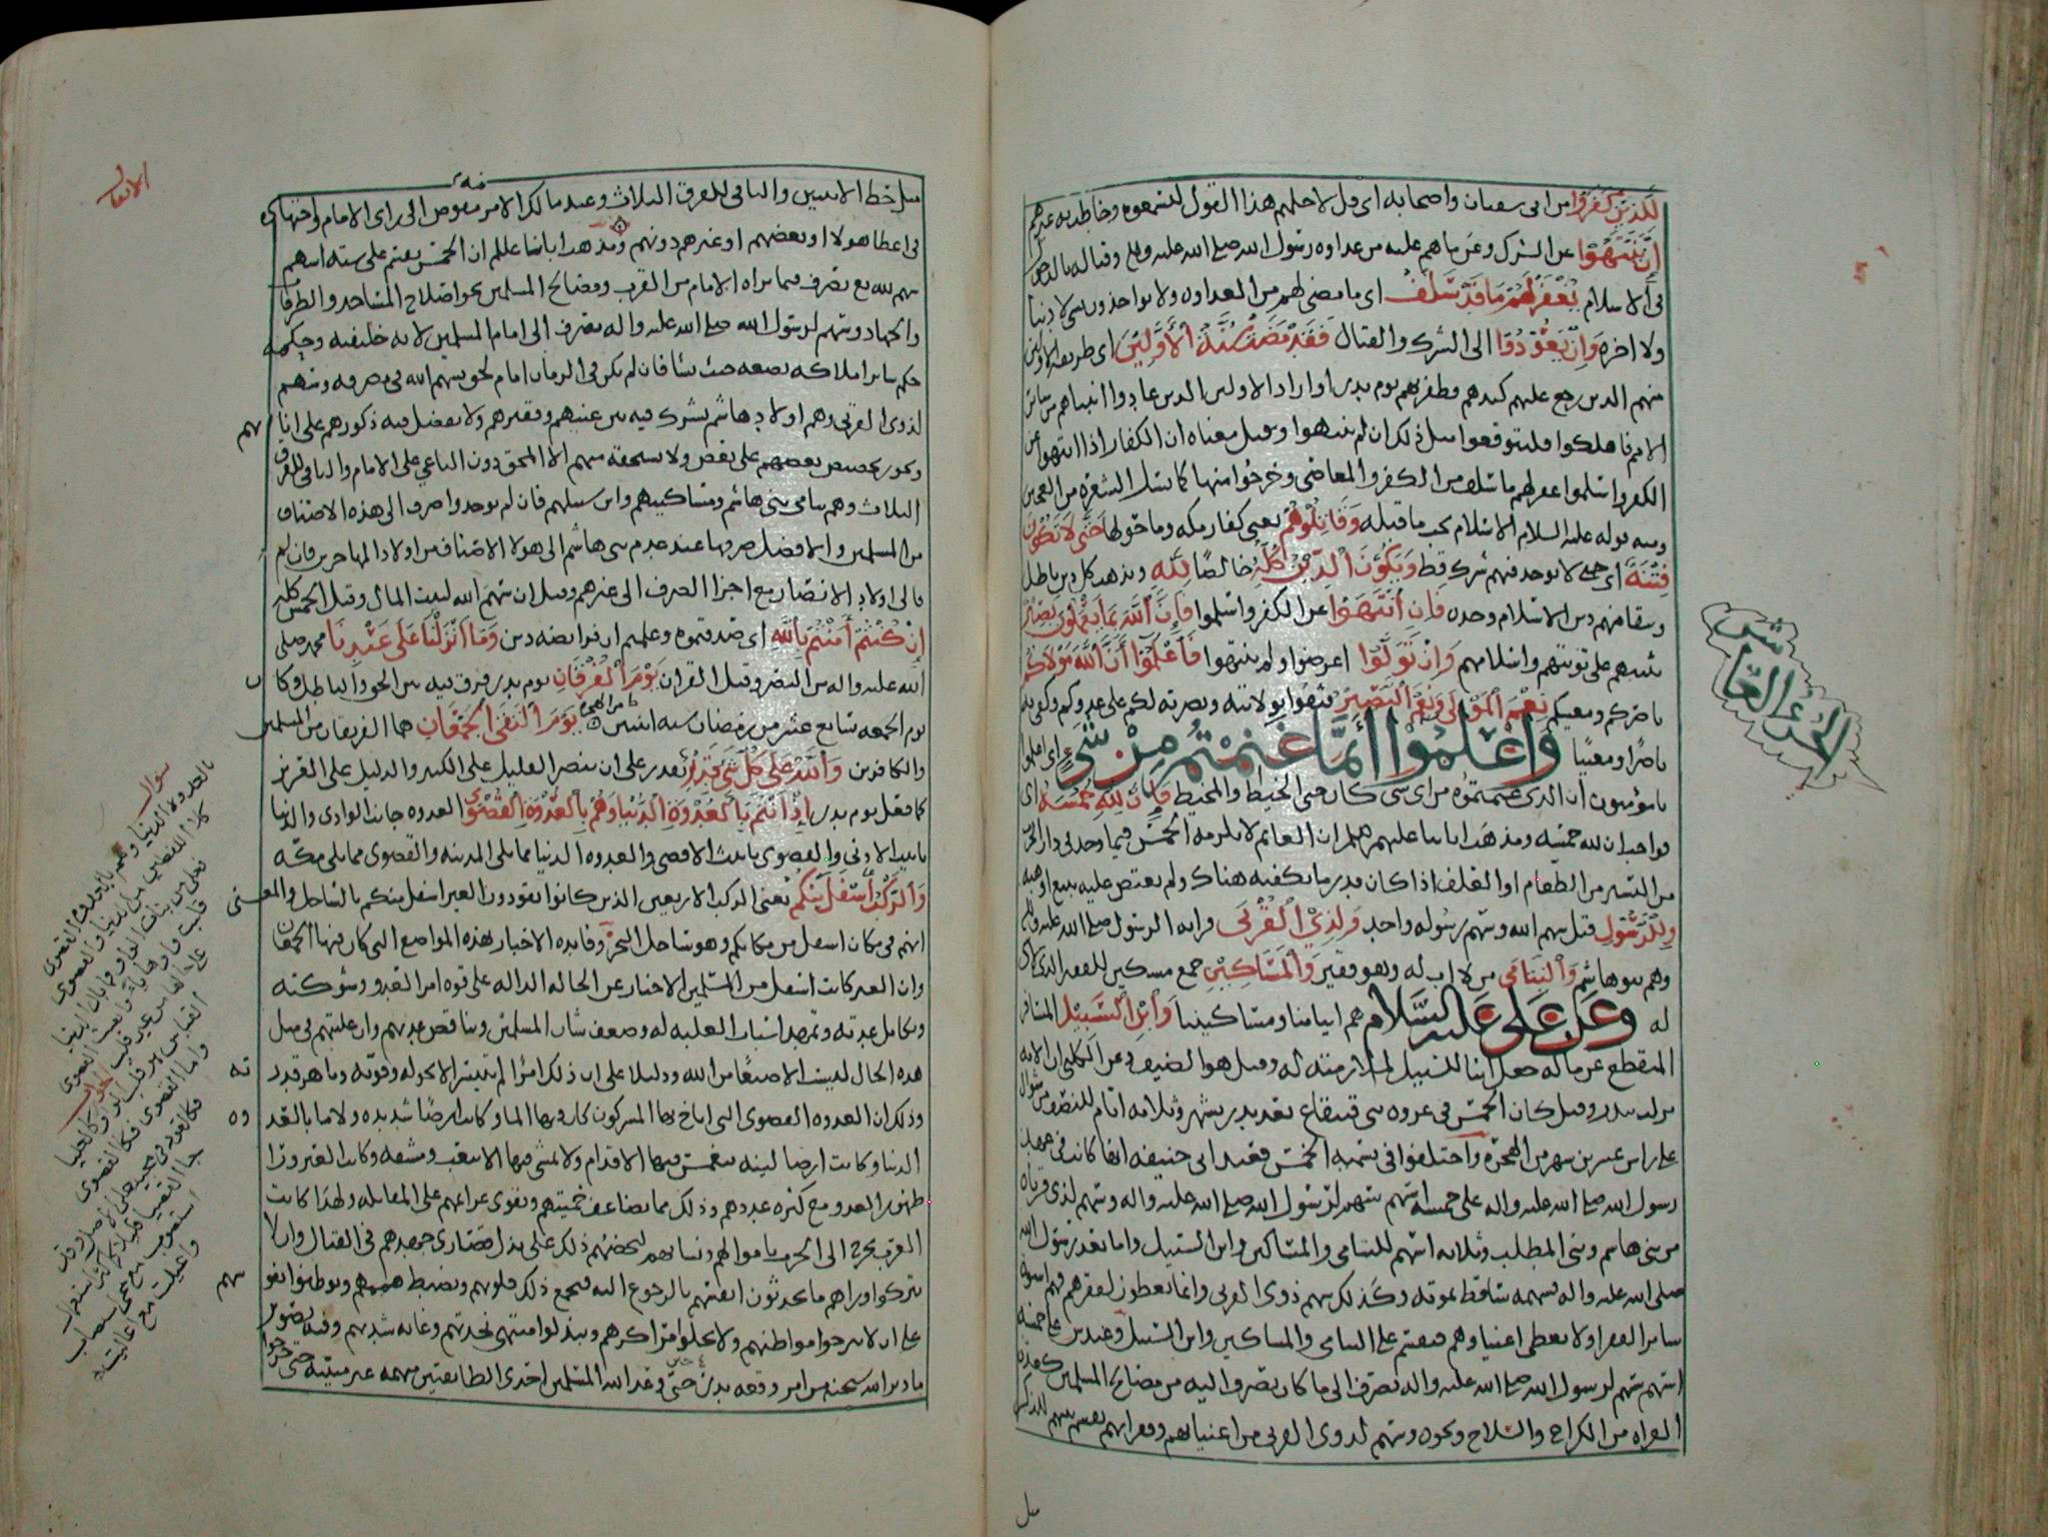 للذين كفروا من ابى سفيان واصحابه اى قل لاجلهم هذا القول لتسمعوه وخاطب به غيرهم
إن ينتهوا عن الشرك وعن ما هم عليه من عداوه رسول الله صلى الله عليه وسلم وقتاله بالدخول
فى الاسلام يغفر لهم ما قد سلف اى ما مضى لهم من العداوه ولا يواخذون به لا دنيا
ولا اخره وإن يعودوا الى الشرك والقتال فقد مضت سنة الأولين اى طريقه الاولين
منهم الذين رجع عليهم كيدهم وظفر بهم يوم بدر او اراد الاولين الذين عادوا انبياهم من سائر
الامم فاهلكوا فليتوقعوا مثل ذلك ان لم ينتهوا وقيل معناه ان الكفار اذا انتهوا عن
الكفر واسلموا غفر لهم ما سلف من الكفر والمعاصى وخرجوا منها كما تسل الشعره من العجين
ومنه قوله عليه السلام الاسلام يجب ما قبله وقاتلوهم يعنى كفار مكه وما حولها حتى لا تكون
فتنة اى حتى لا يوجد فيهم شرك قط ويكون الدين كله خالصا لله ويذهب كل دين باطل
ويبقا فيهم دين الاسلام وحده فإن انتهوا عن الكفر واسلموا فإن الله بما يعملون بصير
يثيبهم على توبتهم واسلامهم وإن تولوا اعرضوا ولم ينتهوا فاعلموا أن الله مولاكم
ناصركم ومعينكم نعم المولى ونعم النصير فثقوا بولايته ونصرته لكم على عدوكم وكفى به
ناصرا ومعينا واعلموا أنما غنمتم من شىء اى اعلموا
يا مومنون ان الذى غنمتموه من اى شى كان حتى الخيط والمخيط فأن لله خمسه اى
فواجب ان لله خمسه ومذهب ابائنا عليهم السلام ان الغانم لا يلزمه الخمس فيما وجد فى دار الحرب
من اليسير من الطعام او العلف اذا كان قدر ما يكفيه هناك ولم يعتض عليه ببيع او هبه
وللرسول قيل سهم الله وسهم رسوله واحد ولذي القربى قرابه الرسول صلى الله عليه واله
وهم بنو هاشم واليتامى من لا اب له وهو فقير والمساكين جمع مسكين للفقير الذى لا شى
له وعن على عليه السلام هم ايتامنا ومساكيننا وابن السبيل المسافر
المنقطع عن ماله جعل ابنا للسبيل لملازمته له وقيل هو الضيف وعن الكلبى ان الايه
نزلت ببدر وقيل كان الخمس فى غزوه بنى قينقاع بعد بدر بشهر وثلاثه ايام للنصف من شوال
على راس عشرين شهرا من الهجره واختلفوا فى قسمه الخمس فعند ابى حنيفه انها كانت فى عهد
رسول الله صلى الله عليه واله على خمسه اسهم سهم لرسول الله صلى الله عليه واله وسهم لذى قرباه
من بنى هاشم وبنى المطلب وثلاثه اسهم لليتامى والمساكين وابن السبيل واما بعد رسول الله
صلى الله عليه واله فسهمه ساقط بموته وكذلك سهم ذوى القربى وانما يعطون لفقرهم فهم اسوه
سائر الفقرا ولا يعطى اغنياوهم فيقسم على اليتامى والمساكين وابن السبيل وعند ش على خمسه
اسهم سهم لرسول الله صلى الله عليه واله يصرف الى ما كان يصرف اليه من مصالح المسلمين كعده
الغزاه من الكراع والسلاح ونحوه وسهم لذوى القربى من اغنيائهم وفقرائهم يقسم بينهم للذكر
الجزء العاشر
مثل
الانفال
مثل حظ الانثيين والباقى للفرق الثلاث وعند مالك الامر مفوض الى راى الامام واجتهاده
فى اعطا هولا او بعضهم او غيرهم دونهم ومذهب ابائنا عللم ان الخمس يقسم على سته اسهم
سهم لله تع يصرف فيما يراه الامام من القرب ومصالح المسلمين نحو اصلاح المساجد والطرقات
والجهاد وسهم لرسول الله صلى الله عليه واله يصرف الى امام المسلمين لانه خليفته وحكمه
حكم سائر املاكه يضعه حيث يشا فان لم يكن فى الزمان امام لحق بسهم الله فى مصرفه وسهم
لذوى القربى وهم اولاد هاشم يشترك فيه بين غنيهم وفقيرهم ولا يفضل فيه ذكورهم على اناثهم
ويجوز تخصيص بعضهم على بعض ولا يستحقه منهم الا المحق دون الباغى على الامام والباقى للفرق
الثلاث وهم يتامى بنى هاشم ومساكينهم وابن سبيلهم فان لم يوجدوا صرف الى هذه الاصناف
من المسلمين والافضل صرفها عند عدم بنى هاشم الى هولا الاصناف من اولاد المهاجرين فان لم
فالى اولاد الانصار مع اجزا الصرف الى غيرهم وقيل ان سهم الله لبيت المال وقيل الخمس كله
إن كنتم آمنتم بالله اى صدقتموه وعلمتم ان فرائضه دين وما أنزلنا على عبدنا محمد صلى
الله عليه واله من النصر وقيل القران يوم الفرقان يوم بدر فرق فيه بين الحق والباطل وكان
يوم الجمعه سابع عشر من رمضان سنه اثنتين من الهجره يوم التقى الجمعان هما الفريقان من المسلمين
والكافرين والله على كل شىء قدير يقدر على ان ينصر القليل على الكثير والذليل على العزيز
كما فعل يوم بدر إذ أنتم بالعدوة الدنيا وهم بالعدوة القصوى العدوه جانب الوادى والدنيا
تانيث الادنى والقصوى تانيث الاقصى والعدوه الدنيا مما يلى المدينه والقصوى مما يلى مكه
والركب أسفل منكم يعنى الركب الاربعين الذين كانوا يقودون العير اسفل منكم بالساحل والمعنى
انهم فى مكان اسفل من مكانكم وهو ساحل البحر وفايده الاخبار بهذه المواضع التى كان فيها الجمعان
وان العير كانت اسفل من المسلمين الاخبار عن الحاله الداله على قوه امر العدو وشوكته
وتكامل عدته وتمهد اسباب الغلبه له وضعف شان المسلمين وتناقص عددهم وان غلبتهم فى مثل
هذه الحال ليست الا صنعا من الله ودليلا على ان ذلك امرا لم يتيسر الا بحوله وقوته وباهر قدرته
وذلك ان العدوه القصوى التى اناخ بها المشركون كان فيها الما وكانت ارضا شديده ولا ما بالعدوه
الدنيا وكانت ارضا لينه تنغمس فيها الاقدام ولا يمشى فيها الا بتعب ومشقه وكانت العير ورا
ظهور العدو مع كثره عددهم وذلك مما يضاعف حميتهم ويقوى عزائمهم على المقاتله ولهذا كانت
العرب تخرج الى الحرب باموالهم ونسائهم ليحضهم ذلك على بذل قصارى جهدهم فى القتال وان لا
يتركوا وراهم ما يحدثون انفسهم بالرجوع اليه فيجمع ذلك قلوبهم ويضبط هممهم ويوطنوا نفوسهم
على ان لا يبرحوا مواطنهم ولا يخلوا مراكزهم ويبذلوا منتهى نجدتهم وغايه شدتهم وفيه تصوير
ما دبر الله سبحنه من امر وقعه بدر حتى وعد الله المسلمين احدى الطائفتين مبهمه غير مبينه حتى خرجوا
سؤال
بالعدوه الدنيا وهم بالعدوه القصوى
جواب